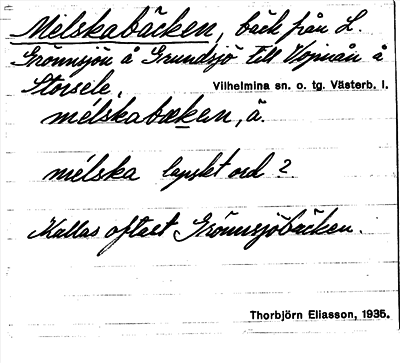 Mélskabäcken, bäck från L.
Grönnsjön å Grundsjö till Vojmån å
Storsele,
Vilhelmina sn. o. tg. Västerb. l.
mélskabæken, ä.
mélska lapskt ord?
Kallas oftast Grönnsjöbäcken.
Thorbjörn Eliasson, 1935.